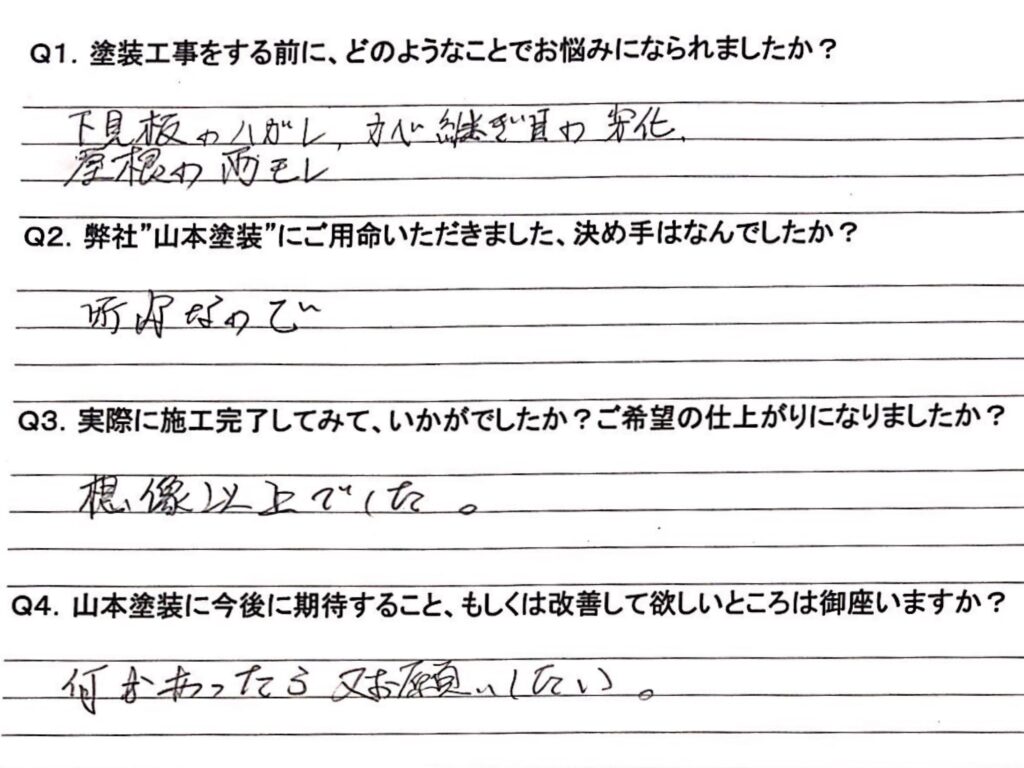 Q1. 塗装工事をする前に、どのようなことでお悩みになられましたか?
下見板のハガレ, カベ継ぎ目の劣化.
屋根の雨モレ
Q2. 弊社”山本塗装”にご用命いただきました、決め手はなんでしたか?
近所なので
Q3. 実際に施工完了してみて、いかがでしたか?ご希望の仕上がりになりましたか?
想像以上でした。
Q4. 山本塗装に今後に期待すること、もしくは改善して欲しいところは御座いますか?
何かあったら又お願いしたい。